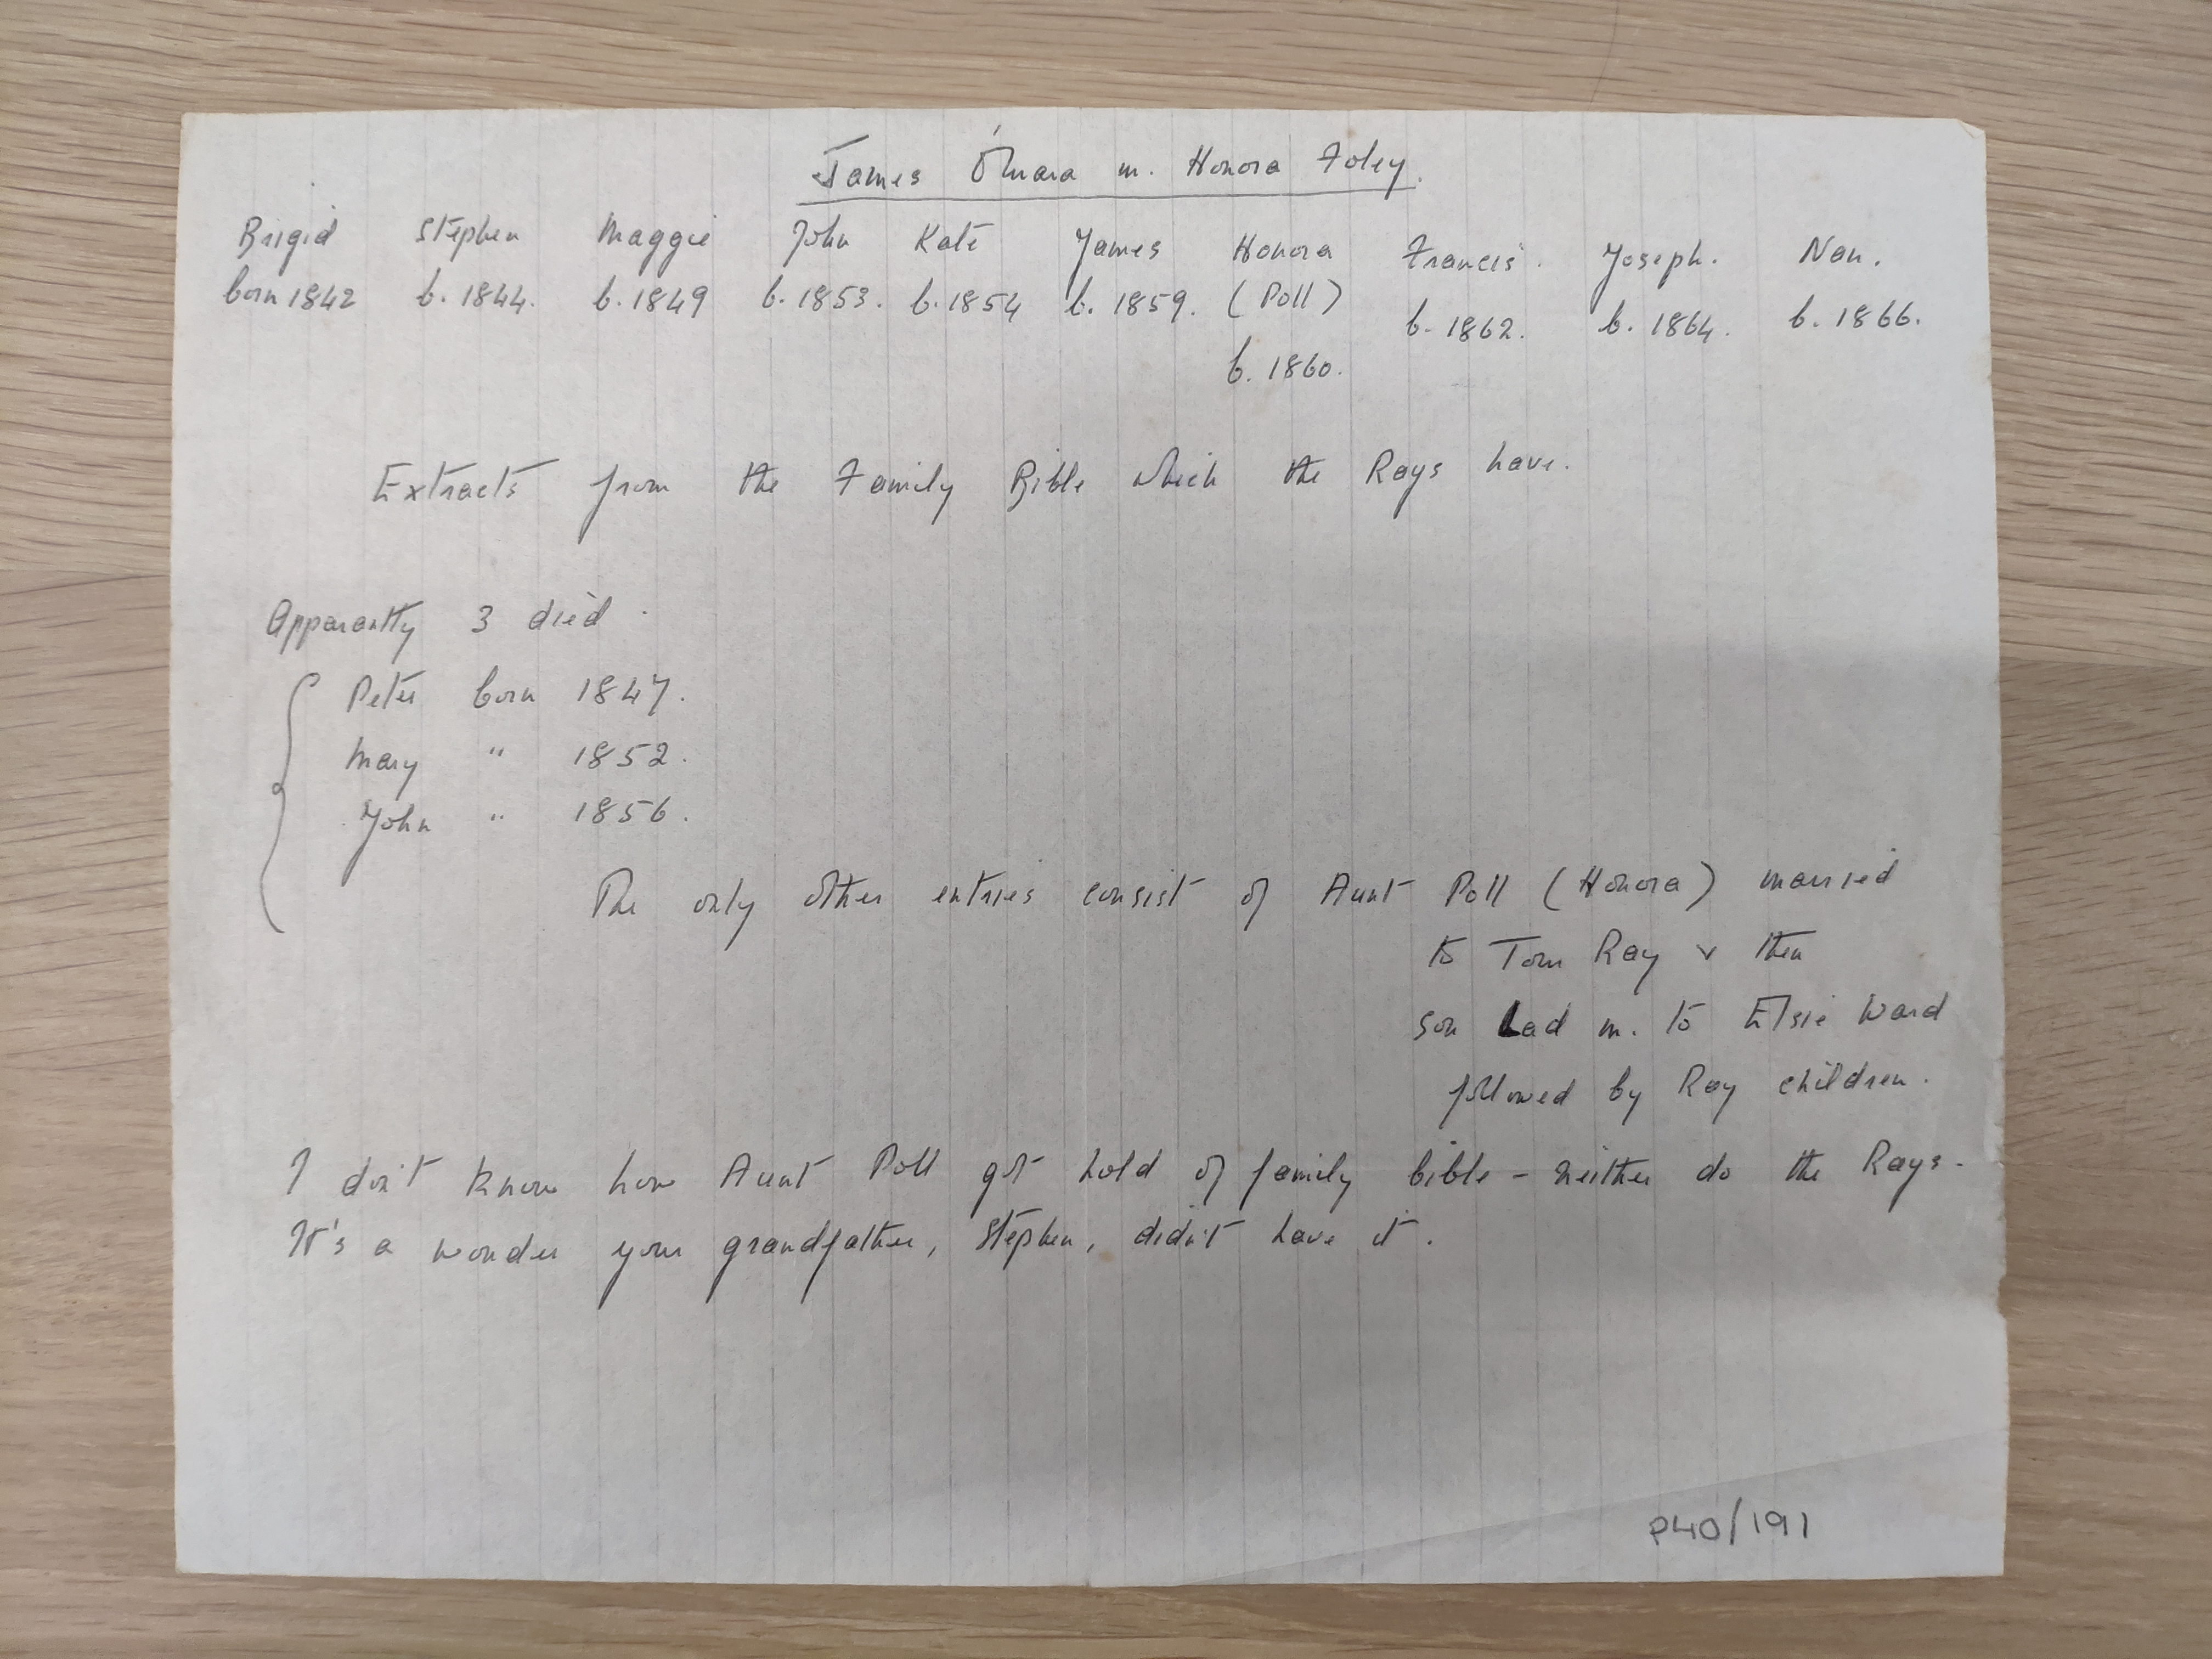 James O'Mara m. Honora Foley.
Brigid Stephen Maggie John Kate James Honora Francis. Joseph. Nan.
born 1842 b. 1844. b. 1849 b. 1853. b. 1854 b. 1859. (Poll) b. 1862. b. 1864. b. 1866.
b. 1860.
Extracts from the Family Bible which the Rays have.
Apparantly 3 died.
Peter born 1847.
Mary " 1852.
John " 1856.
The only other entries consist of Aunt Poll (Honora) married
to Tom Ray & then
son Lad m. to Elsie Ward
followed by Ray children.
I don't know how Aunt Poll got hold of family bible - neither do the Rays.
It's a wonder your grandfather, Stephen, didn't have it.
P40/191